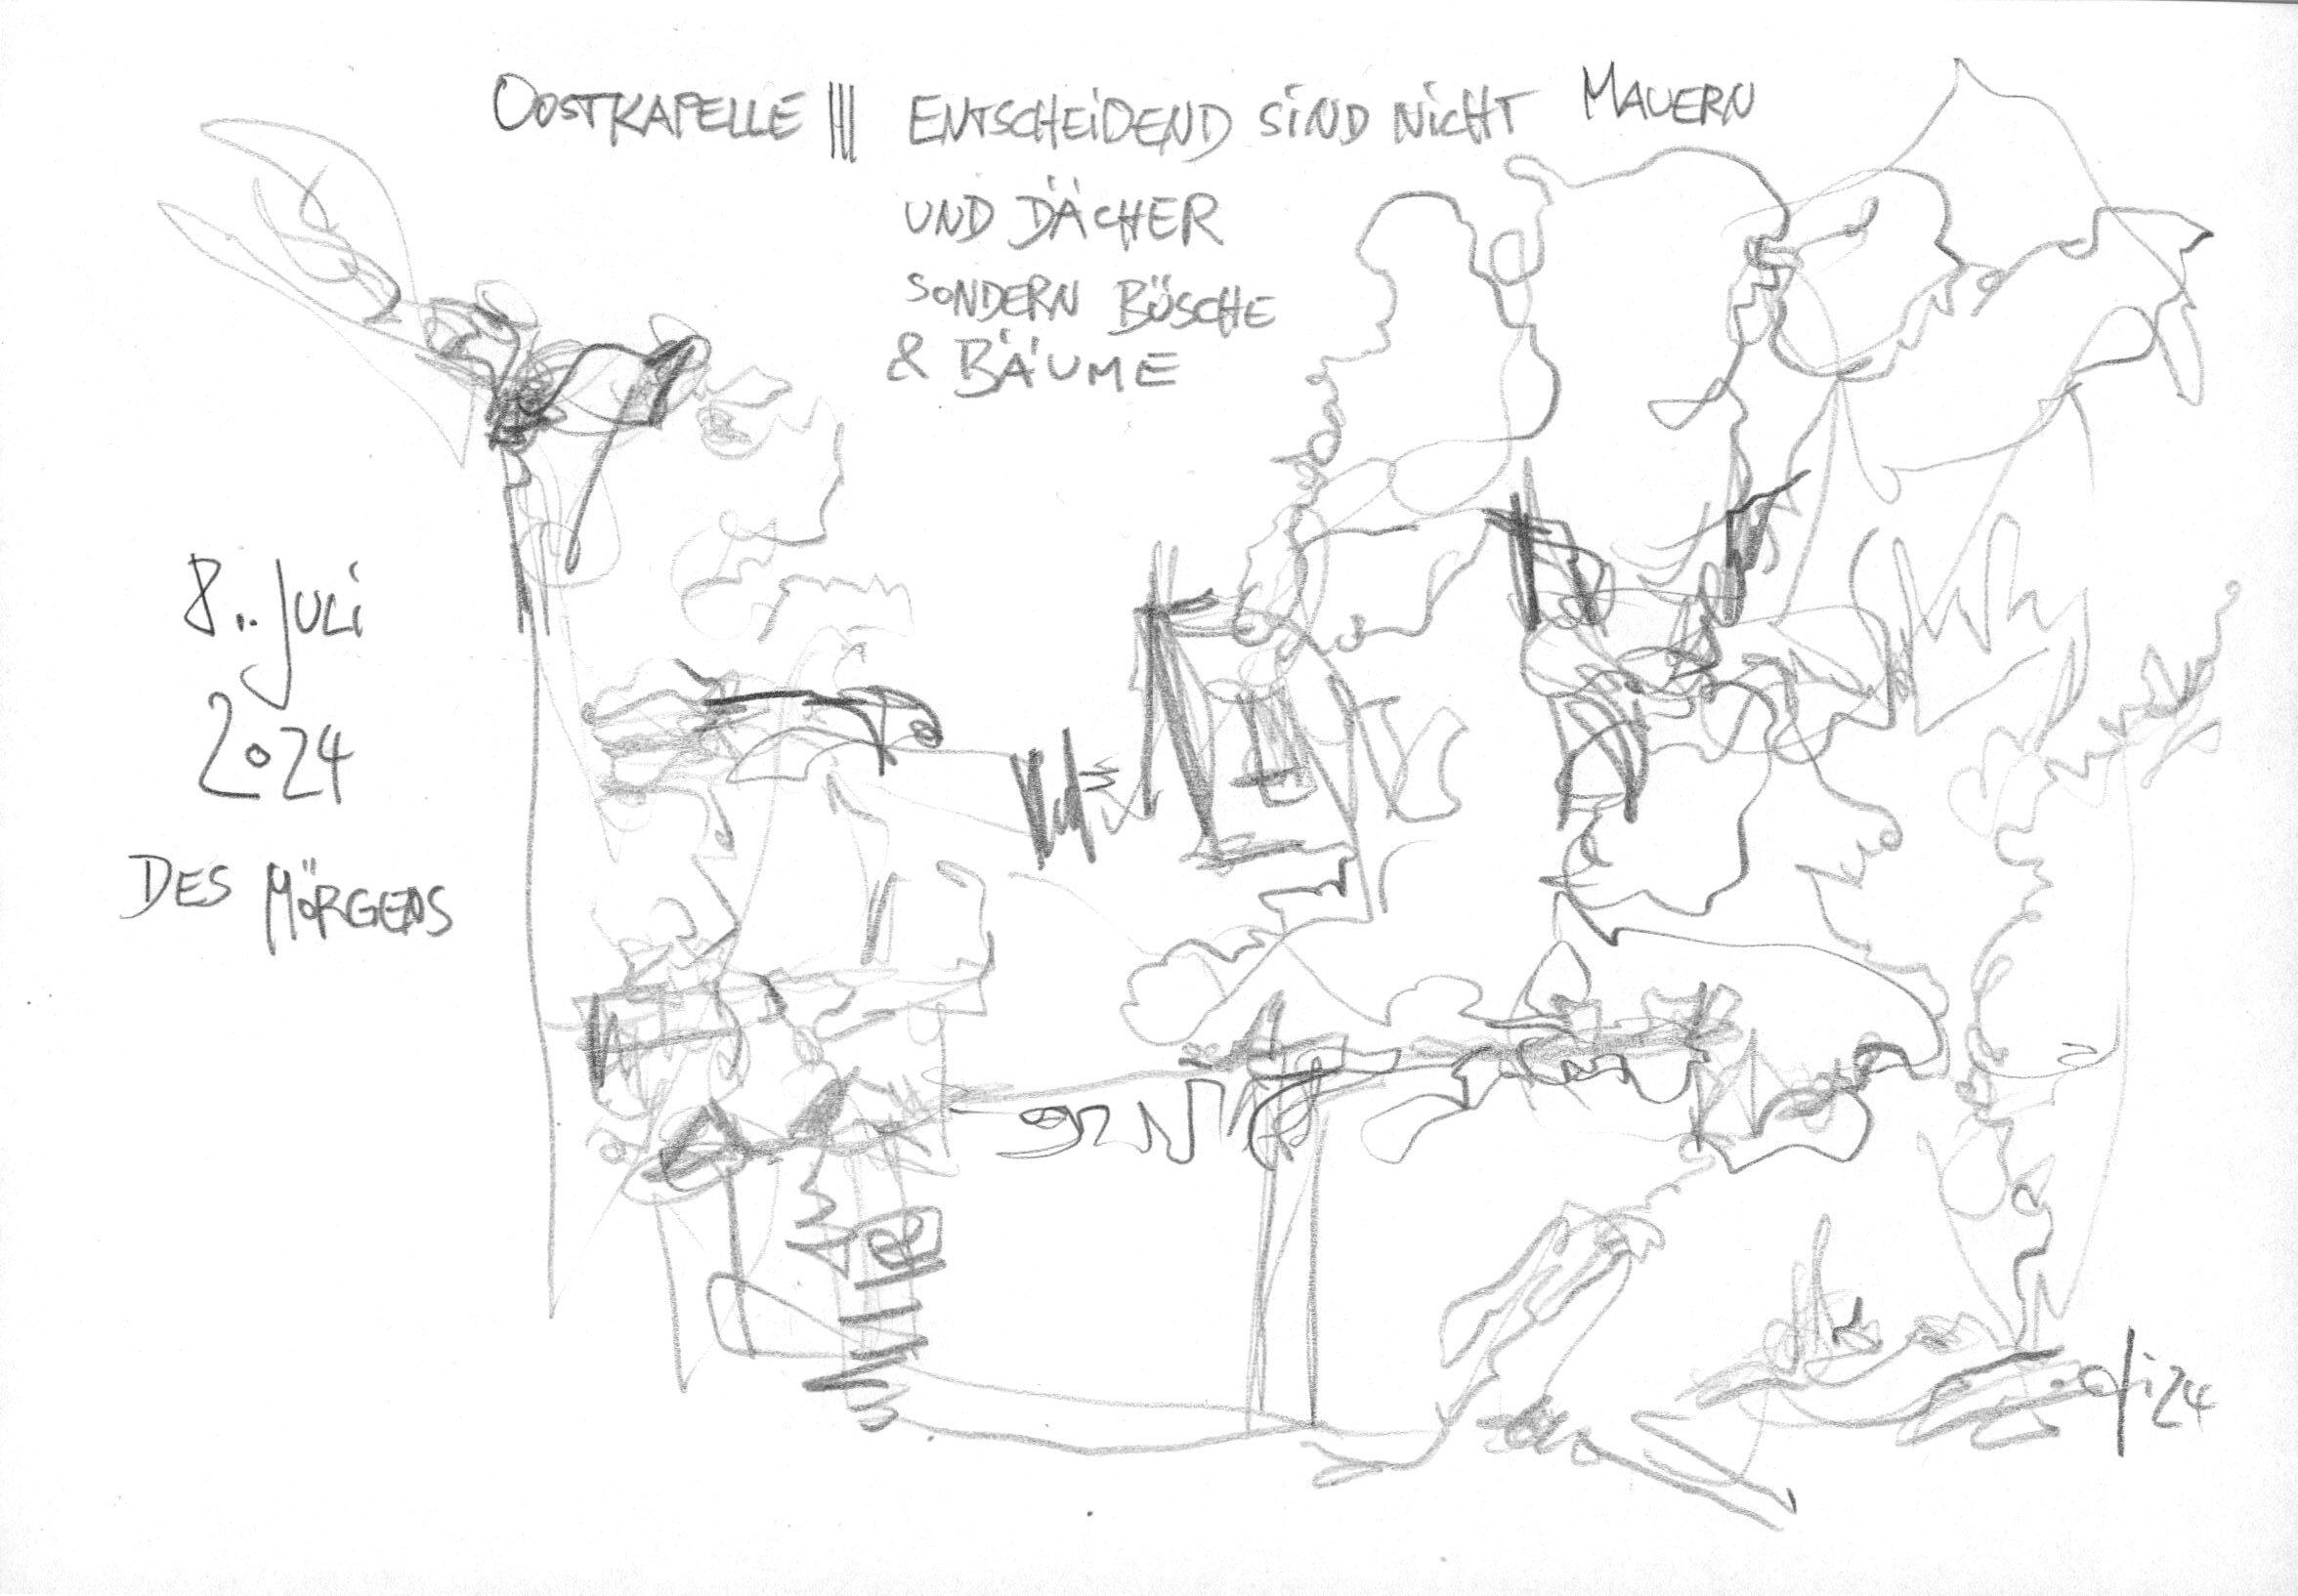 OOSTKAPELLE III ENTSCHEiDEND SiND NiCHT MAUERN
UND DÄCHER
SONDERN BÜSCHE
& BÄUME
8.. JULi
2024
DES MÖRGENS